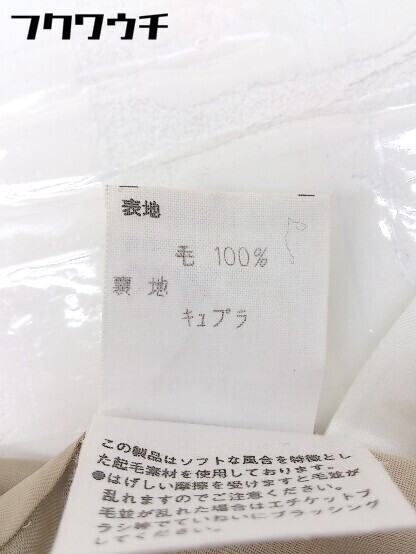 フクワウチ
表地
毛 100%
裏地
キュプラ
この製品はソフトな風合を特徴とし
た起毛素材を使用しております。
●はげしい摩擦を受けますと毛並が
乱れますのでご注意ください。
毛並が乱れた場合はエチケットブ
ラシ等でていねいにブラッシング
してください。